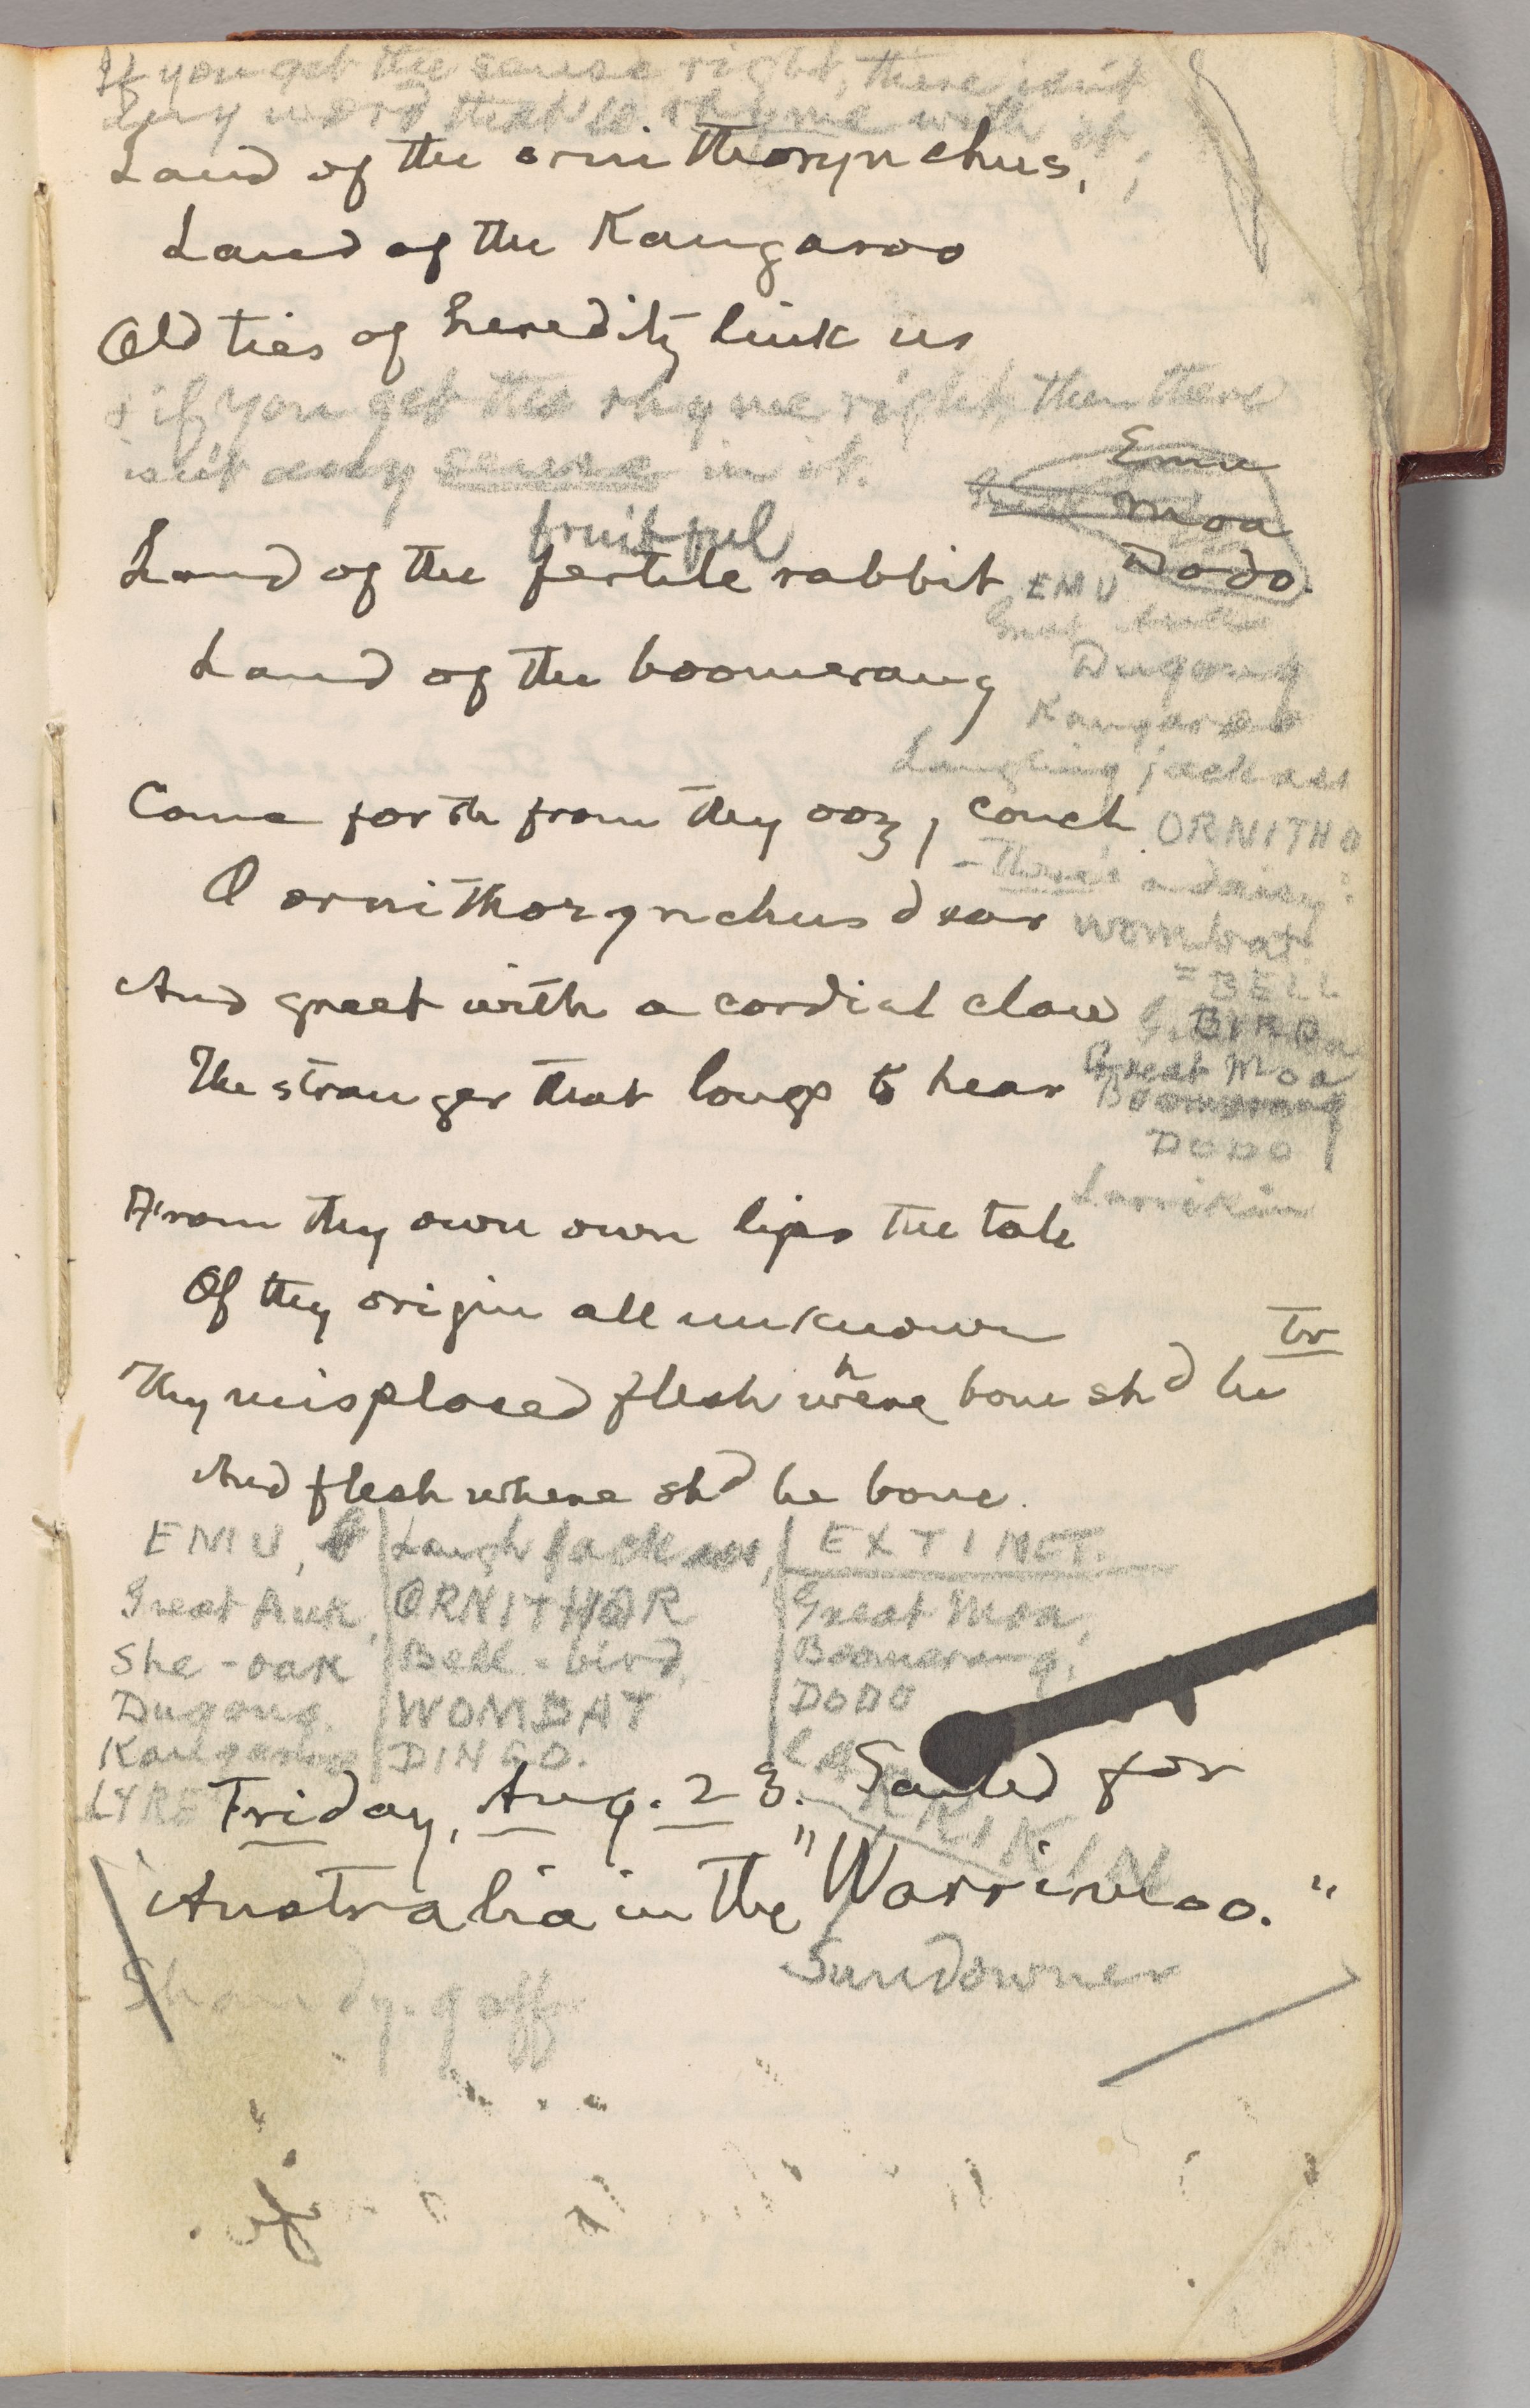 If you get the sense right, there isn't
any word that'll rhyme with it;
Land of the ornithorynchus,
Land of the Kangaroo
Old ties of heredity link us
& if you get the rhyme right, then there
isn't any sense in it.
Emu
Great Moa
fruitful
Dodo.
Land of the fertile rabbit
EMU
Great
Land of the boomerang
Dugong
Kangaroo
Laughing jackass
Come forth from thy oozy couch
ORNITHO
- there's a daisy!
O ornithorynchus dear
wombat
= BELL
And greet with a cordial claw
BIRD
The stranger that longs to hear
Great Moa
Boomerang
DODO
Larrikin
From thy own own lips the tale
Of thy origin all unknown
tr
Thy misplaced flesh where bone shd be
And flesh where shd be bone.
EMU, Laugh jackass, EXTINCT.
Great Auk, ORNITHOR Great Moa,
She-oak Bell-bird, Boomerang,
Dugong. WOMBAT DODO
Kangaroo DINGO. LARRIKIN
LYRE
Friday, Aug. 23. Sailed for
Australia in the "Warrimoo."
Sundowner
Shandy-gaff